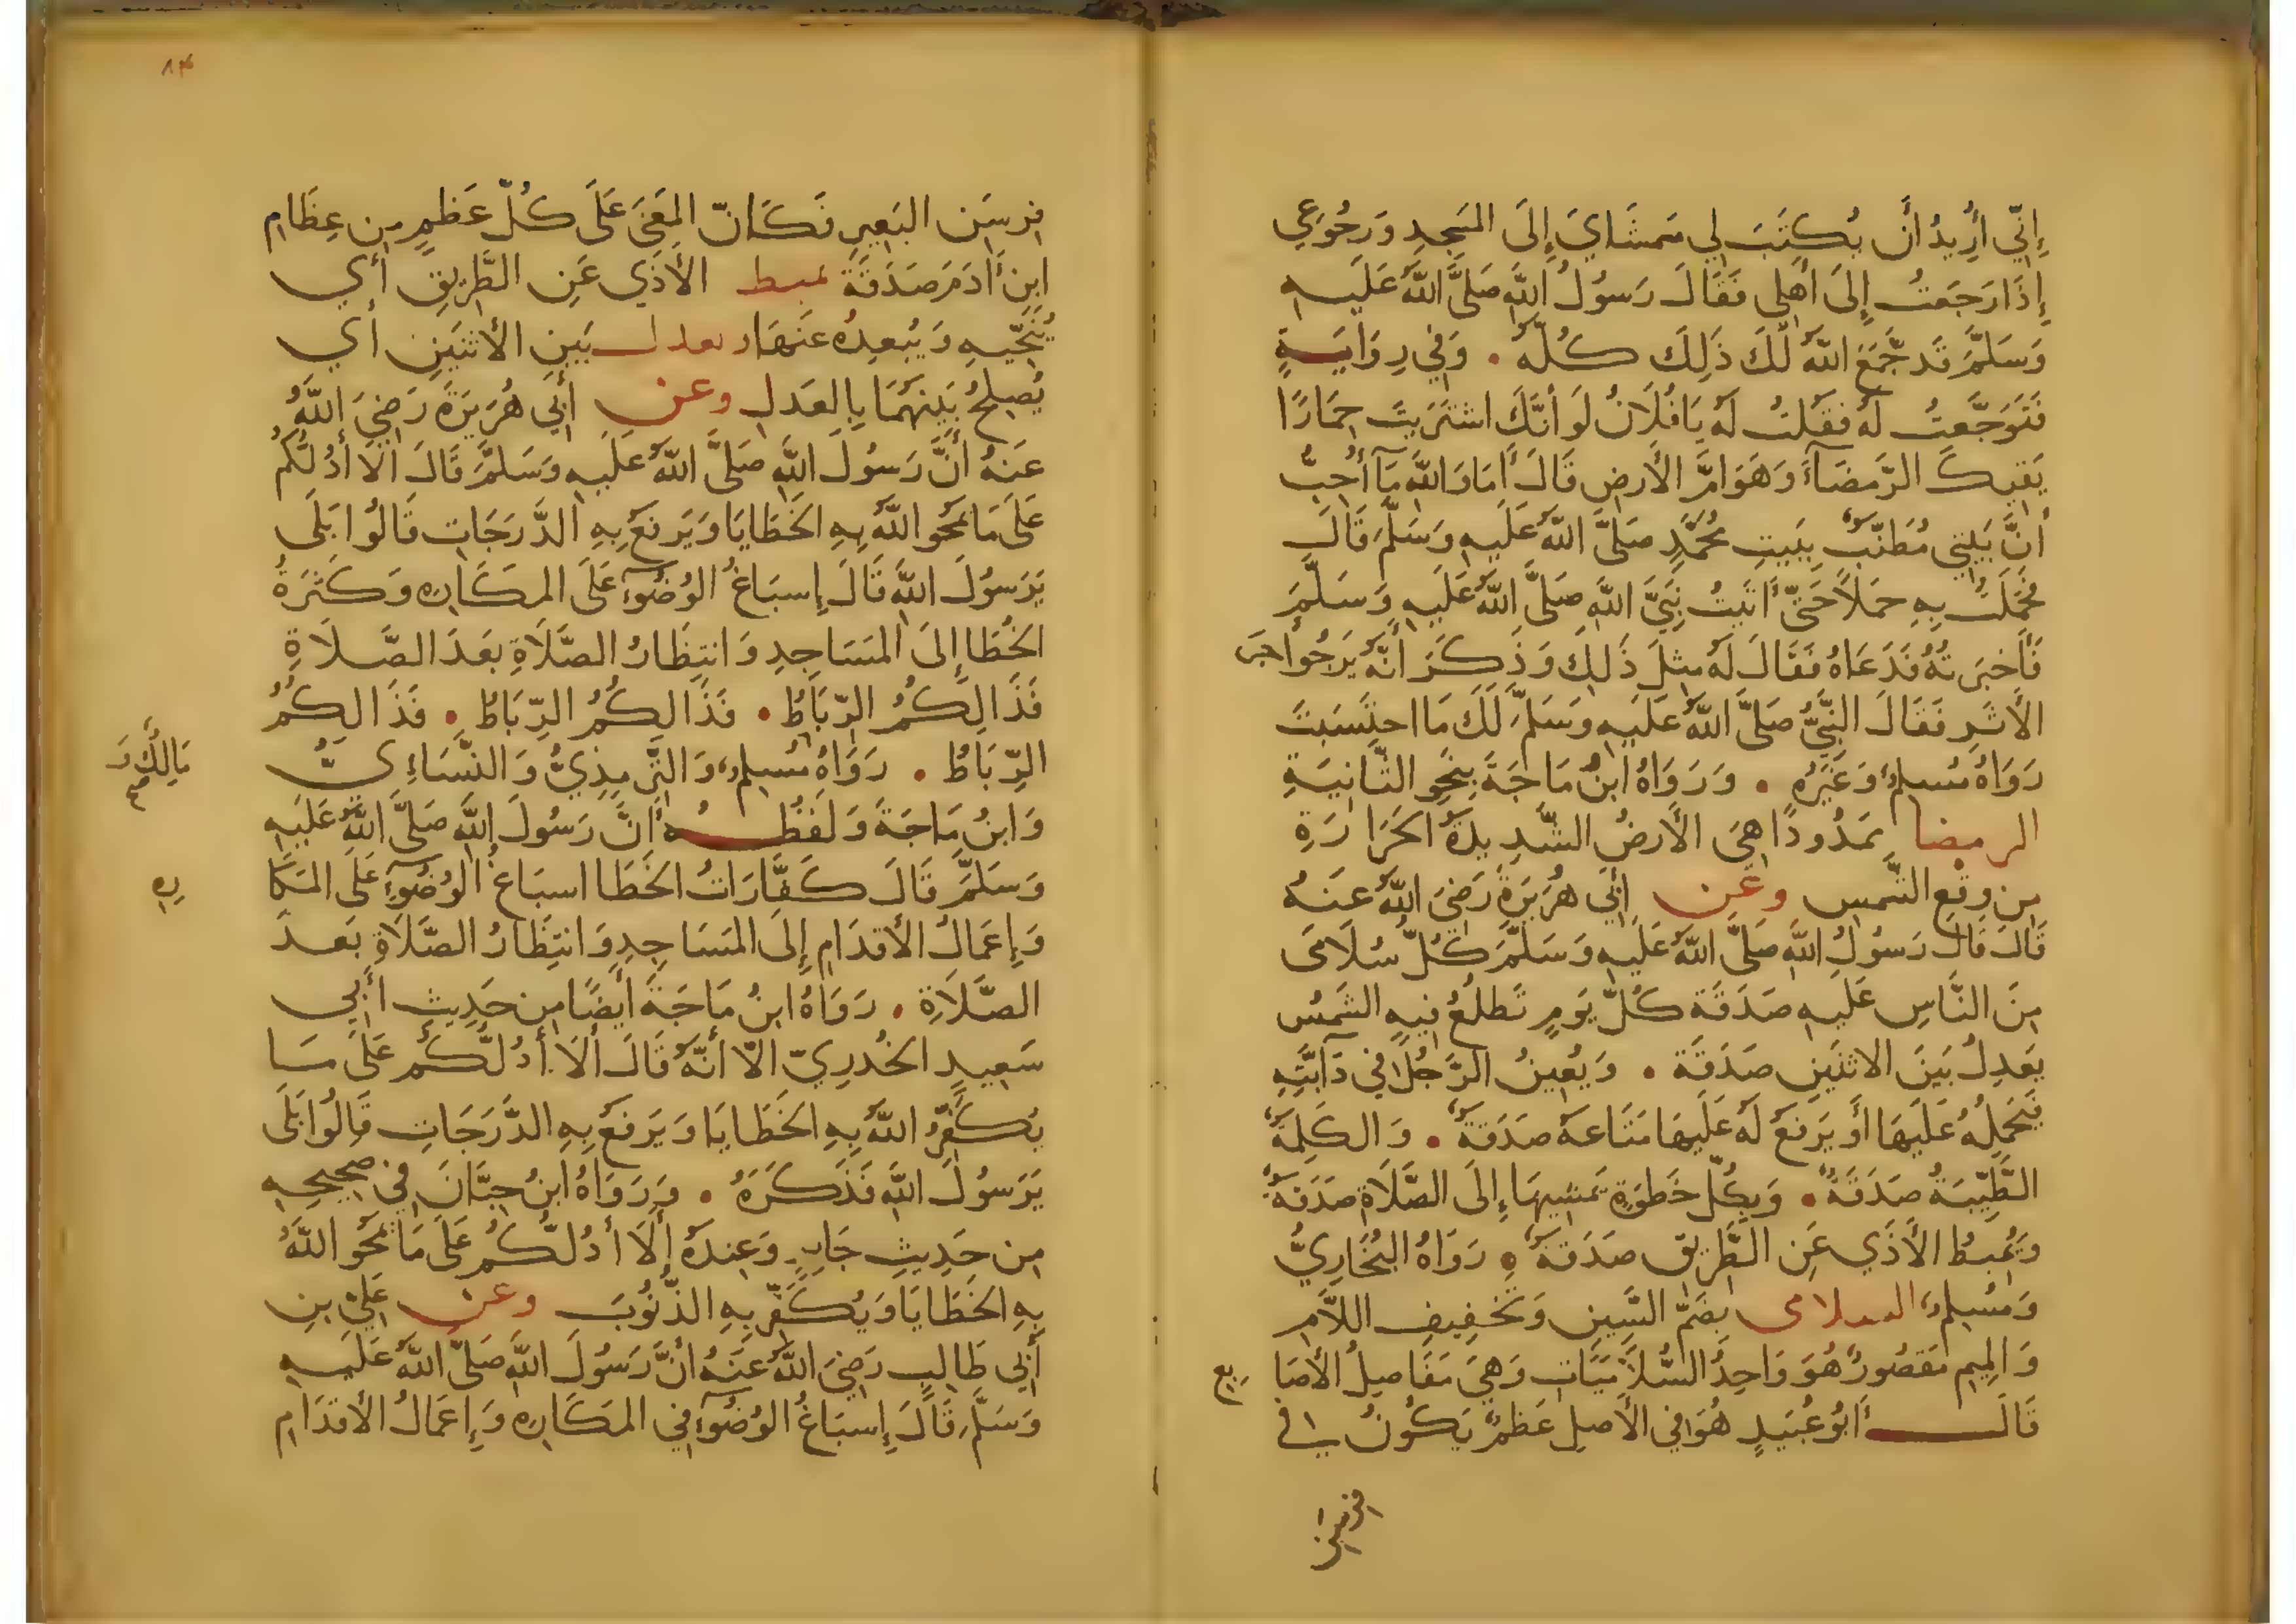 إِنِّي أُرِيدُ أَن يُكتَبَ لِي مَمشَايَ إِلَى المَسجِدِ وَرُجُوعِي
إِذَا رَجَعتُ إِلَى أَهلِي فَقَالَ رَسُولُ اللَّهِ صَلَّى اللَّهُ عَلَيهِ
وَسَلَّمَ قَد جَمَعَ اللَّهُ لَكَ ذَلِكَ كُلَّهُ . وَفِي رِوَايَةٍ
فَتَوَجَّعتُ لَهُ فَقُلتُ لَهُ يَا فُلَانُ لَو أَنَّكَ اشتَرَيتَ حِمَارًا
يَقِيكَ الرَّمضَآءَ وَهَوَامَّ الأَرضِ قَالَ أَمَا وَاللَّهِ مَآ أُحِبُّ
أَنَّ بَيتِي مُطَنَّبٌ بِبَيتِ مُحَمَّدٍ صَلَّى اللَّهُ عَلَيهِ وَسَلَّمَ قَالَ
فَحَمَلتُ بِهِ حَملًا حَتَّى أَتَيتُ نَبِيَّ اللَّهِ صَلَّى اللَّهُ عَلَيهِ وَسَلَّمَ
فَأَخبَرتُهُ فَدَعَاهُ فَقَالَ لَهُ مِثلَ ذَلِكَ وَذَكَرَ أَنَّهُ يَرجُو أَجرَ
الأَثَرِ فَقَالَ النَّبِيُّ صَلَّى اللَّهُ عَلَيهِ وَسَلَّمَ لَكَ مَا احتَسَبتَ
رَوَاهُ مُسلِمٌ وَغَيرُهُ . وَرَوَاهُ ابنُ مَاجَةَ بِنَحوِ الثَّانِيَةِ
الرمضا مَمدُودًا هِيَ الأَرضُ الشَّدِيدَةُ الحَرَارَةِ
مِن وَقعِ الشَّمسِ وعن أَبِي هُرَيرَةَ رَضِيَ اللَّهُ عَنهُ
قَالَ قَالَ رَسُولُ اللَّهِ صَلَّى اللَّهُ عَلَيهِ وَسَلَّمَ كُلُّ سُلَامَى
مِنَ النَّاسِ عَلَيهِ صَدَقَة كُلَّ يَومٍ تَطلُعُ فِيهِ الشَّمسُ
يَعدِلُ بَينَ الاثنَينِ صَدَقَة . وَيُعِينُ الرَّجُلَ فِي دَآبَّتِهِ
فَيَحمِلُهُ عَلَيهَا أَو يَرفَعُ لَهُ عَلَيهَا مَتَاعَهُ صَدَقَةٌ . وَالكَلِمَةُ
الطَّيِّبَةُ صَدَقَةٌ . وَبِكُلِّ خَطوَةٍ يَمشِيهَا إِلَى الصَّلَاةِ صَدَقَةٌ
وَيُمِيطُ الأَذَي عَنِ الطَّرِيقِ صَدَقَةٌ . رَوَاهُ البُخَارِيُّ
وَمُسلِمٌ السلامى بِضَمِّ السِّينِ وَتَخفِيفِ اللَّامِ
وَالمِيمِ مَقصُورٌ هُوَ وَاحِدُ السُّلَامَيَاتِ وَهِيَ مَفَاصِلُ الأَصَا
بِعِ
قَالَ أَبُو عُبَيدٍ هُوَ فِي الأَصلِ عَظمٌ يَكُونُ فِي
فِرسِنِ
٨٣
فِرسِنِ البَعِيرِ فَكَانَ المَعنَى عَلَى كُلِّ عَظمٍ مِن عِظَامِ
ابنِ أَدَمَ صَدَقَة يميط الأَذَي عَنِ الطَّرِيقِ أَي
يُنَحِّيهِ وَيُبعِدُهُ عَنهَا ويعدل بَينِ الأَثنَينِ أَي
يُصلِحُ بَينَهُمَا بِالعَدلِ وعن أَبِي هُرَيرَةَ رَضِيَ اللَّهُ
عَنهُ أَنَّ رَسُولَ اللَّهِ صَلَّى اللَّهُ عَلَيهِ وَسَلَّمَ قَالَ أَلَا أَدُلُّكُم
عَلَى مَا يَمحُو اللَّهُ بِهِ الخَطَايَا وَيَرفَعُ بِهِ الدَّرَجَاتِ قَالُوا بَلَى
يَرَسُولَ اللَّهِ قَالَ إِسبَاغُ الوُضُوءِ عَلَى المَكَارِهِ وَكَثرَةُ
الخُطَا إِلَى المَسَاجِدِ وَانتِظَارُ الصَّلَاةِ بَعدَ الصَّلَاةِ
فَذَالِكُمُ الرِّبَاطُ . فَذَالِكُمُ الرِّبَاطُ . فَذَالِكُمُ
الرِّبَاطُ . رَوَاهُ مُسلِمٌ وَالتِّرمِذِيُّ وَالنَّسَاءِيُّ
مَالِكٌ وَ
صح
وَابنُ مَاجَةَ وَلَفظُهُ أَنَّ رَسُولَ اللَّهِ صَلَّى اللَّهُ عَلَيهِ
وَسَلَّمَ قَالَ كَفَّارَاتُ الخَطَا اسبَاغُ الوُضُوءِ عَلَى المَكَا
رِهِ
وَإِعمَالُ الأَقدَامِ إِلَى المَسَاجِدِ وَانتِظَارُ الصَّلَاةِ بَعدَ
الصَّلَاةِ . رَوَاهُ ابنُ مَاجَةَ أَيضًا مِن حَدِيثِ أَبِي
سَعِيدٍ الخُدرِيِّ الَّا أَنَّهُ قَالَ أَلَا أَدُلُّكُم عَلَى مَا
يُكَفِّرُ اللَّهُ بِهِ الخَطَايَا وَيَرفَعُ بِهِ الدَّرَجَاتِ قَالُوا بَلَى
يَرَسُولَ اللَّهِ فَذَكَرَهُ . وَرَوَاهُ ابنُ حِبَّانَ فِي صَحِيحِهِ
مِن حَدِيثِ جَابِرٍ وَعِندَهُ أَلَا أَدُلُّكُم عَلَى مَا يَمحُو اللَّهُ
بِهِ الخَطَايَا وَيُكَفِّرُ بِهِ الذُّنُوبَ وعن عَلِيِّ بنِ
أَبِي طَالِبٍ رَضِيَ اللَّهُ عَنهُ أَنَّ رَسُولَ اللَّهِ صَلَّى اللَّهُ عَلَيهِ
وَسَلَّمَ قَالَ إِسبَاغُ الوُضُوءِ فِي المَكَارِهِ وَإِعمَالُ الأَقدَامِ